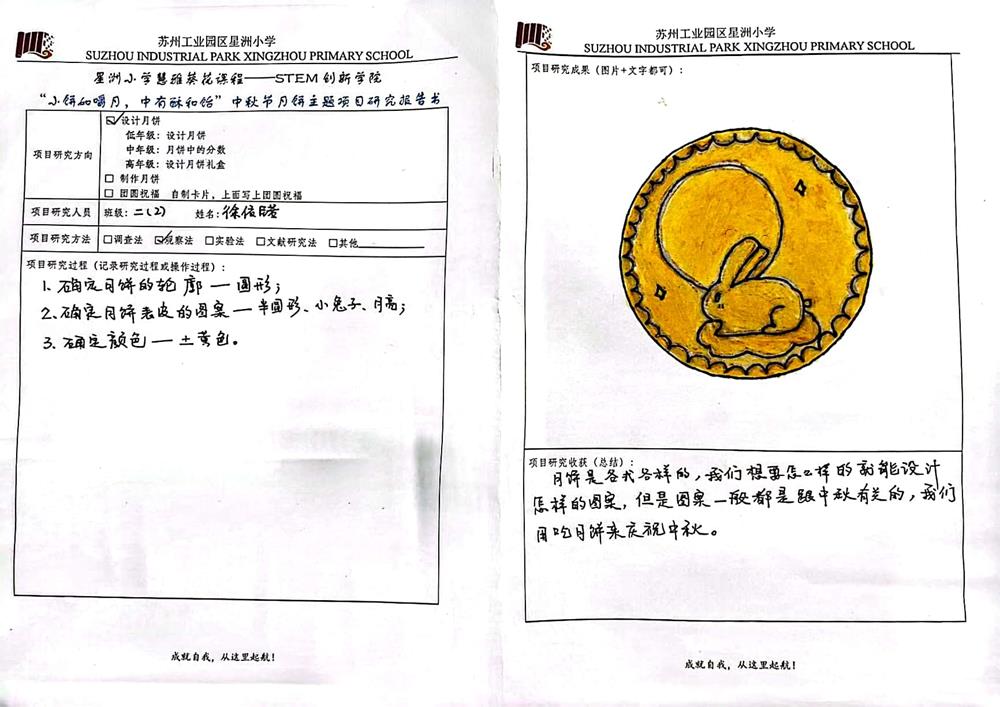 苏州工业园区星洲小学
SUZHOU INDUSTRIAL PARK XINGZHOU PRIMARY SCHOOL
星洲小学慧雅葵花课程——STEM创新学院
“小饼如嚼月，中有酥和饴”中秋节月饼主题项目研究报告书
项目研究方向
☑设计月饼
低年级：设计月饼
中年级：月饼中的分数
高年级：设计月饼礼盒
□ 制作月饼
□ 团圆祝福 自制卡片，上面写上团圆祝福
项目研究人员 班级：二(2) 姓名：徐
项目研究方法 □调查法 ☑观察法 □实验法 □文献研究法 □其他
项目研究过程（记录研究过程或操作过程）：
1、确定月饼的轮廓—圆形；
2、确定月饼表皮的图案—半圆形、小兔子、月亮；
3、确定颜色—土黄色。
成就自我，从这里起航！
苏州工业园区星洲小学
SUZHOU INDUSTRIAL PARK XINGZHOU PRIMARY SCHOOL
项目研究成果（图片+文字都可）：
项目研究收获（总结）：
月饼是各式各样的，我们想要怎么样的就能设计
怎样的图案，但是图案一般都是跟中秋有关的，我们
用吃月饼来庆祝中秋。
成就自我，从这里起航！